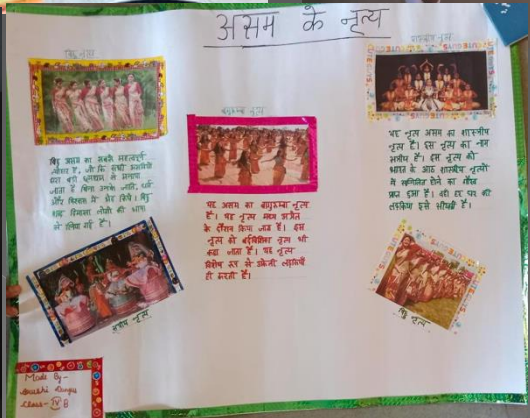 असम के नृत्य
बिहु नृत्य
बिहु असम का सबसे महत्वपूर्ण
त्योहार है, जो कि सभी
द्वारा बड़ी धूमधाम से मनाया
जाता है बिना उनके जाति, धर्म
और विश्वास में भेद किये। बिहु
शब्द दिमासा लोगों की भाषा
से लिया गई है।
बागुरुम्बा नृत्य
यह असम का बागुरुम्बा नृत्य
है। यह नृत्य
के दौरान किया जाता है। इस
नृत्य को नृत्य भी
कहा जाता है। यह नृत्य
विशेष रूप से लड़कियाँ
ही करती हैं।
शास्त्रीय नृत्य
यह नृत्य असम का शास्त्रीय
नृत्य है। इस नृत्य का नाम
है। इस नृत्य को
भारत के आठ शास्त्रीय नृत्यों
में सम्मिलित होने का गौरव
प्राप्त हुआ है।
नृत्य
बिहु नृत्य
Made By-
Class- IV B